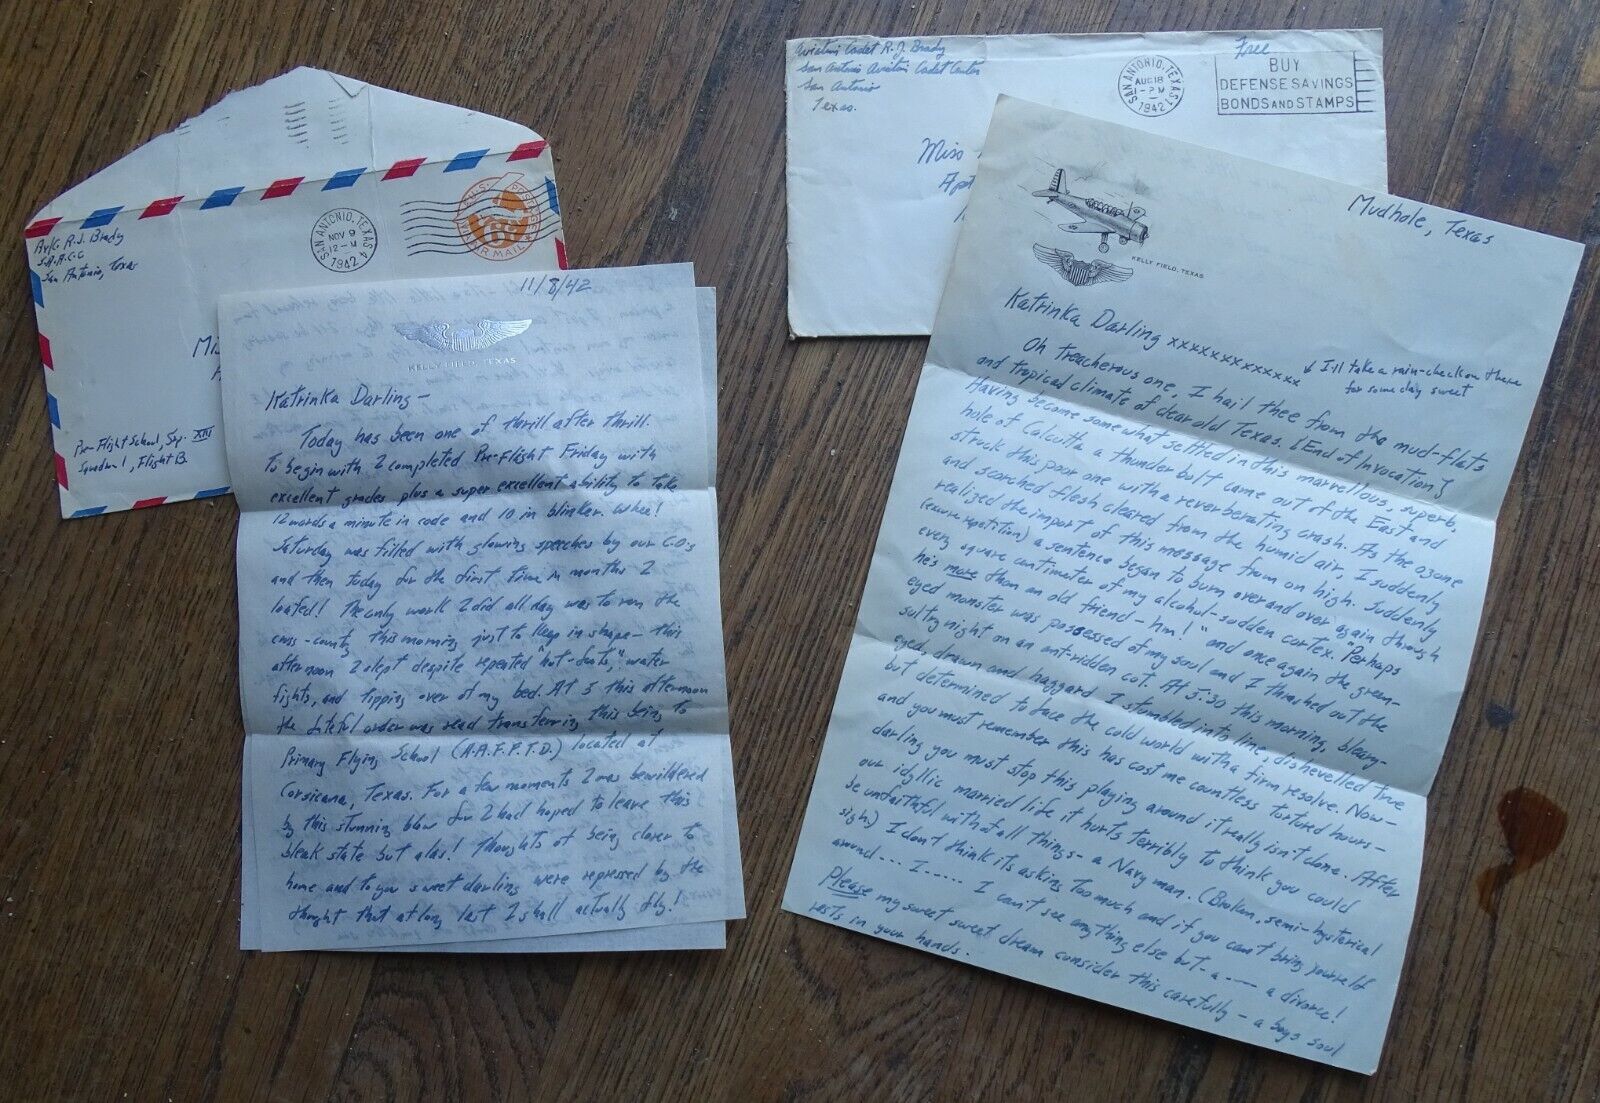 Av/C R.J. Brady
S.A.A.C.C
San Antonio, Texas
SAN ANTONIO, TEXAS 4
NOV 9
12-M
1942
U.S. POSTAGE
6¢
AIR MAIL
Pre-Flight School, Sqp. XIII
Squadron 1, Flight B.
11/8/42
KELLY FIELD, TEXAS
Katrinka Darling -
Today has been one of thrill after thrill.
To begin with I completed Pre-Flight Friday with
excellent grades plus a super excellent ability to take
12 words a minute in code and 10 in blinker. Whee!
Saturday was filled with glowing speeches by our C.O.s
and then today for the first time in months I
loafed! The only work I did all day was to run the
cross-country this morning just to keep in shape - this
afternoon I slept despite repeated "hot-foots," water
fights, and tipping over of my bed. At 5 this afternoon
the fateful order was read transferring this being to
Primary Flying School (A.A.F.P.T.D.) located at
Corsicana, Texas. For a few moments I was bewildered
by this stunning blow for I had hoped to leave this
bleak state but alas! Thoughts of being closer to
home and to you sweet darling were repressed by the
thought that at long last I shall actually fly!
Aviation Cadet R. J. Brady
San Antonio Aviation Cadet Center
San Antonio
Texas.
SAN ANTONIO, TEXAS 1
AUG 18
1-PM
1942
Free
BUY
DEFENSE SAVINGS
BONDS AND STAMPS
Miss
Apt
KELLY FIELD, TEXAS
Mudhole, Texas
Katrinka Darling xxxxxxxxxxxxxx
↓ I'll take a rain-check on these
for some day sweet
Oh treacherous one, I hail thee from the mud-flats
and tropical climate of dear old Texas. [End of Invocation]
Having become somewhat settled in this marvellous, superb,
hole of Calcutta a thunder bolt came out of the East and
struck this poor one with a reverberating crash. As the ozone
and scorched flesh cleared from the humid air, I suddenly
realized the import of this message from on high. Suddenly
(excuse repetition) a sentence began to burn over and over again through
every square centimeter of my alcohol-sudden cortex. "Perhaps
he's more than an old friend - hm!" and once again the green-
eyed monster was possessed of my soul and I thrashed out the
sultry night on an ant-ridden cot. At 5:30 this morning, bleary-
eyed, drawn and haggard I stumbled into line, dishevelled true
but determined to face the cold world with a firm resolve. Now-
and you must remember this has cost me countless tortured hours-
darling you must stop this playing around it really isn't done. After
our idyllic married life it hurts terribly to think you could
be unfaithful with of all things - a Navy man. (Broken, semi-hysterical
sigh.) I don't think its asking too much and if you can't bring yourself
around... I..... I can't see anything else but - a ---- a divorce!
Please my sweet sweet dream consider this carefully - a boys soul
rests in your hands.